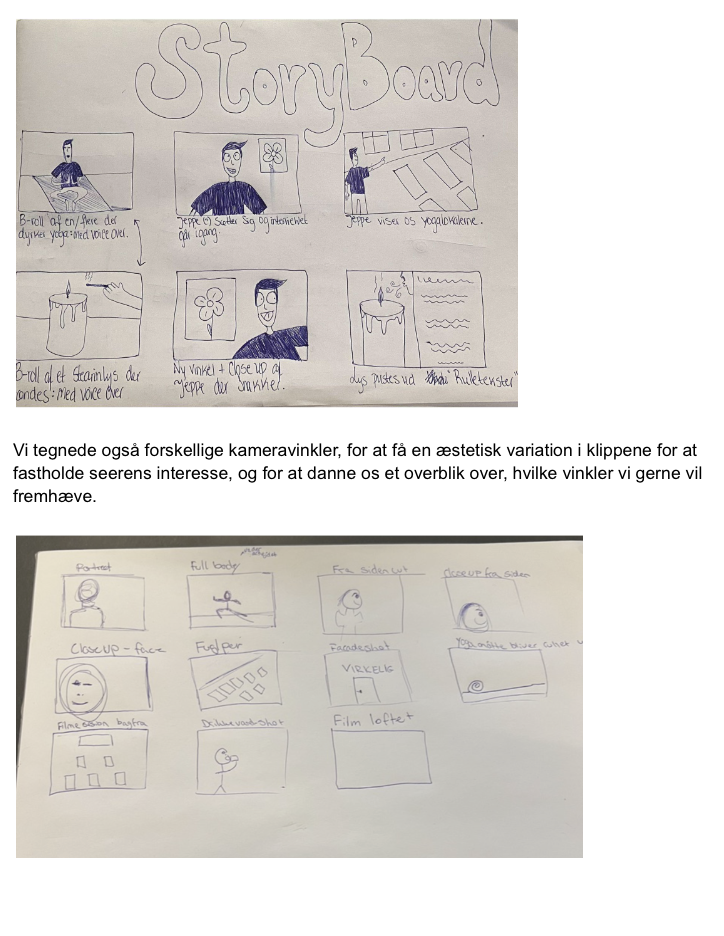 StoryBoard
B-roll af en/flere der
dyrker yoga: med voice over.
Jeppe (?) Sætter sig og interviewet
går igang.
Jeppe viser os yogalokalerne.
B-roll af et Stearinlys der
tændes: med voice over
Ny vinkel + Close up af
Jeppe der snakker.
Lys pustes ud "Rulletekster"
Vi tegnede også forskellige kameravinkler, for at få en æstetisk variation i klippene for at
fastholde seerens interesse, og for at danne os et overblik over, hvilke vinkler vi gerne vil
fremhæve.
Portræt
Full body
Fra siden
Close up fra siden
Close up - face
Fugleper
Facadeshot
VIRKELIG
Yoga måtte bliver rullet
Filme bagfra
Drikke vand shot
Film loftet